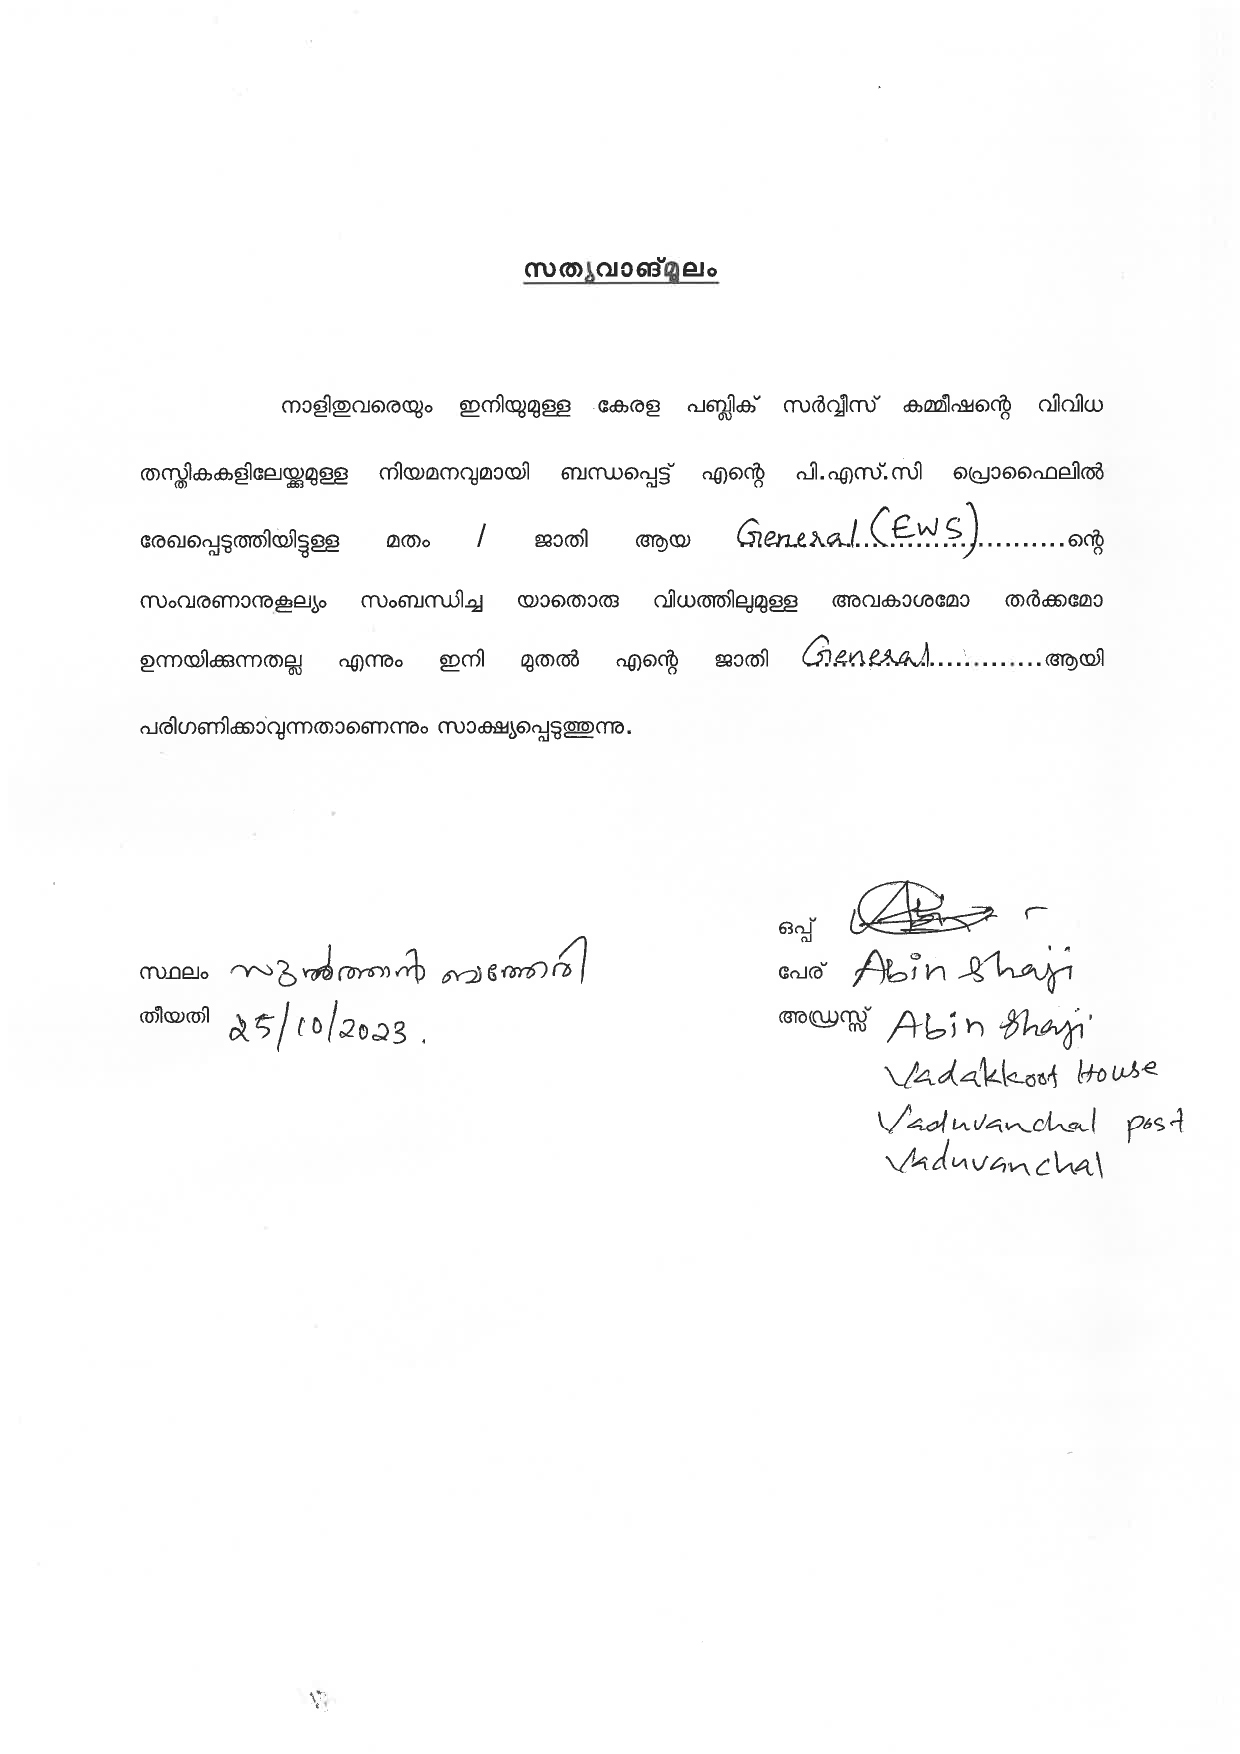 സത്യവാങ്മൂലം
നാളിതുവരെയും ഇനിയുമുള്ള കേരള പബ്ലിക് സർവ്വീസ് കമ്മീഷന്റെ വിവിധ
തസ്തികകളിലേയ്ക്കുമുള്ള നിയമനവുമായി ബന്ധപ്പെട്ട് എന്റെ പി.എസ്.സി പ്രൊഫൈലിൽ
രേഖപ്പെടുത്തിയിട്ടുള്ള മതം / ജാതി ആയ General (EWS)..........ന്റെ
സംവരണാനുകൂല്യം സംബന്ധിച്ച യാതൊരു വിധത്തിലുമുള്ള അവകാശമോ തർക്കമോ
ഉന്നയിക്കുന്നതല്ല എന്നും ഇനി മുതൽ എന്റെ ജാതി General.............ആയി
പരിഗണിക്കാവുന്നതാണെന്നും സാക്ഷ്യപ്പെടുത്തുന്നു.
ഒപ്പ്
സ്ഥലം സുൽത്താൻ ബത്തേരി
പേര് Abin Shaji
തീയതി 25/10/2023.
അഡ്രസ്സ് Abin Shaji
Vadakkoot House
Vaduvanchal post
Vaduvanchal